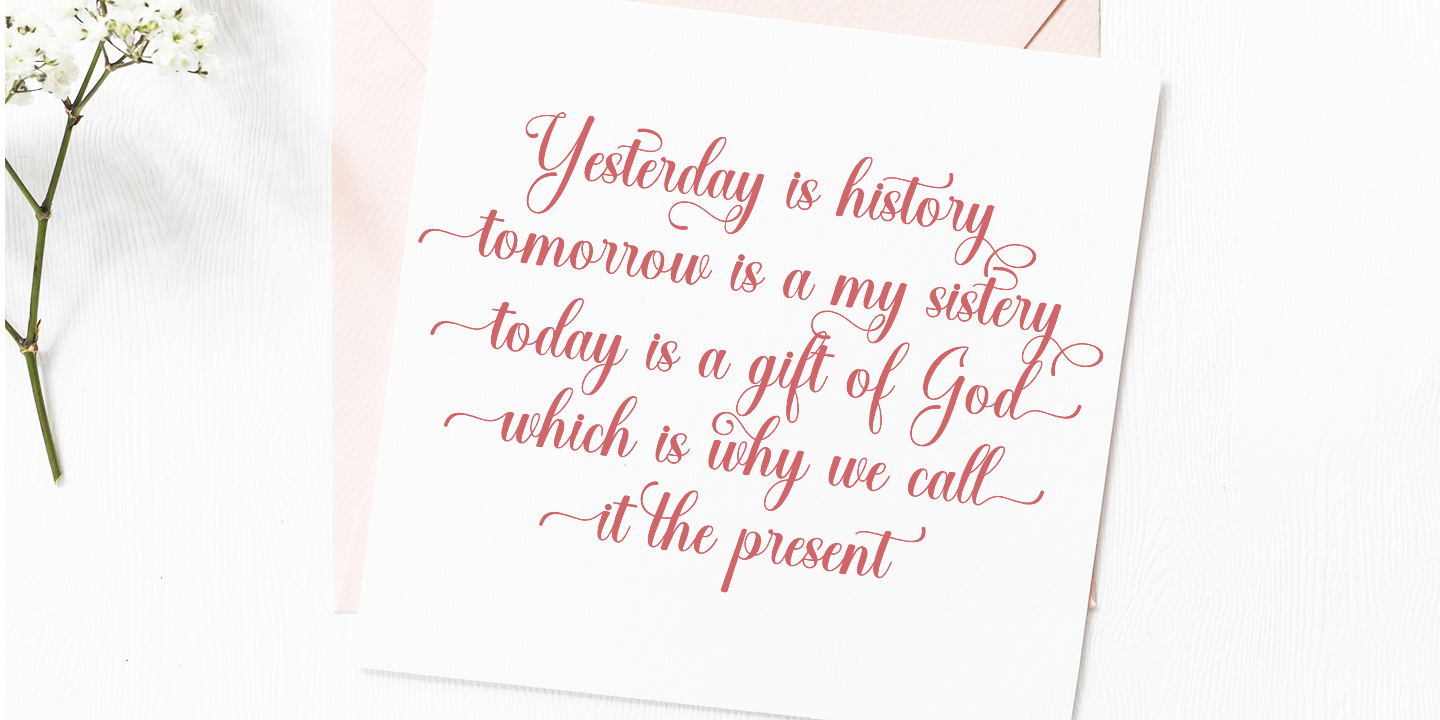 Yesterday is history
tomorrow is a my sistery
today is a gift of God
which is why we call
it the present